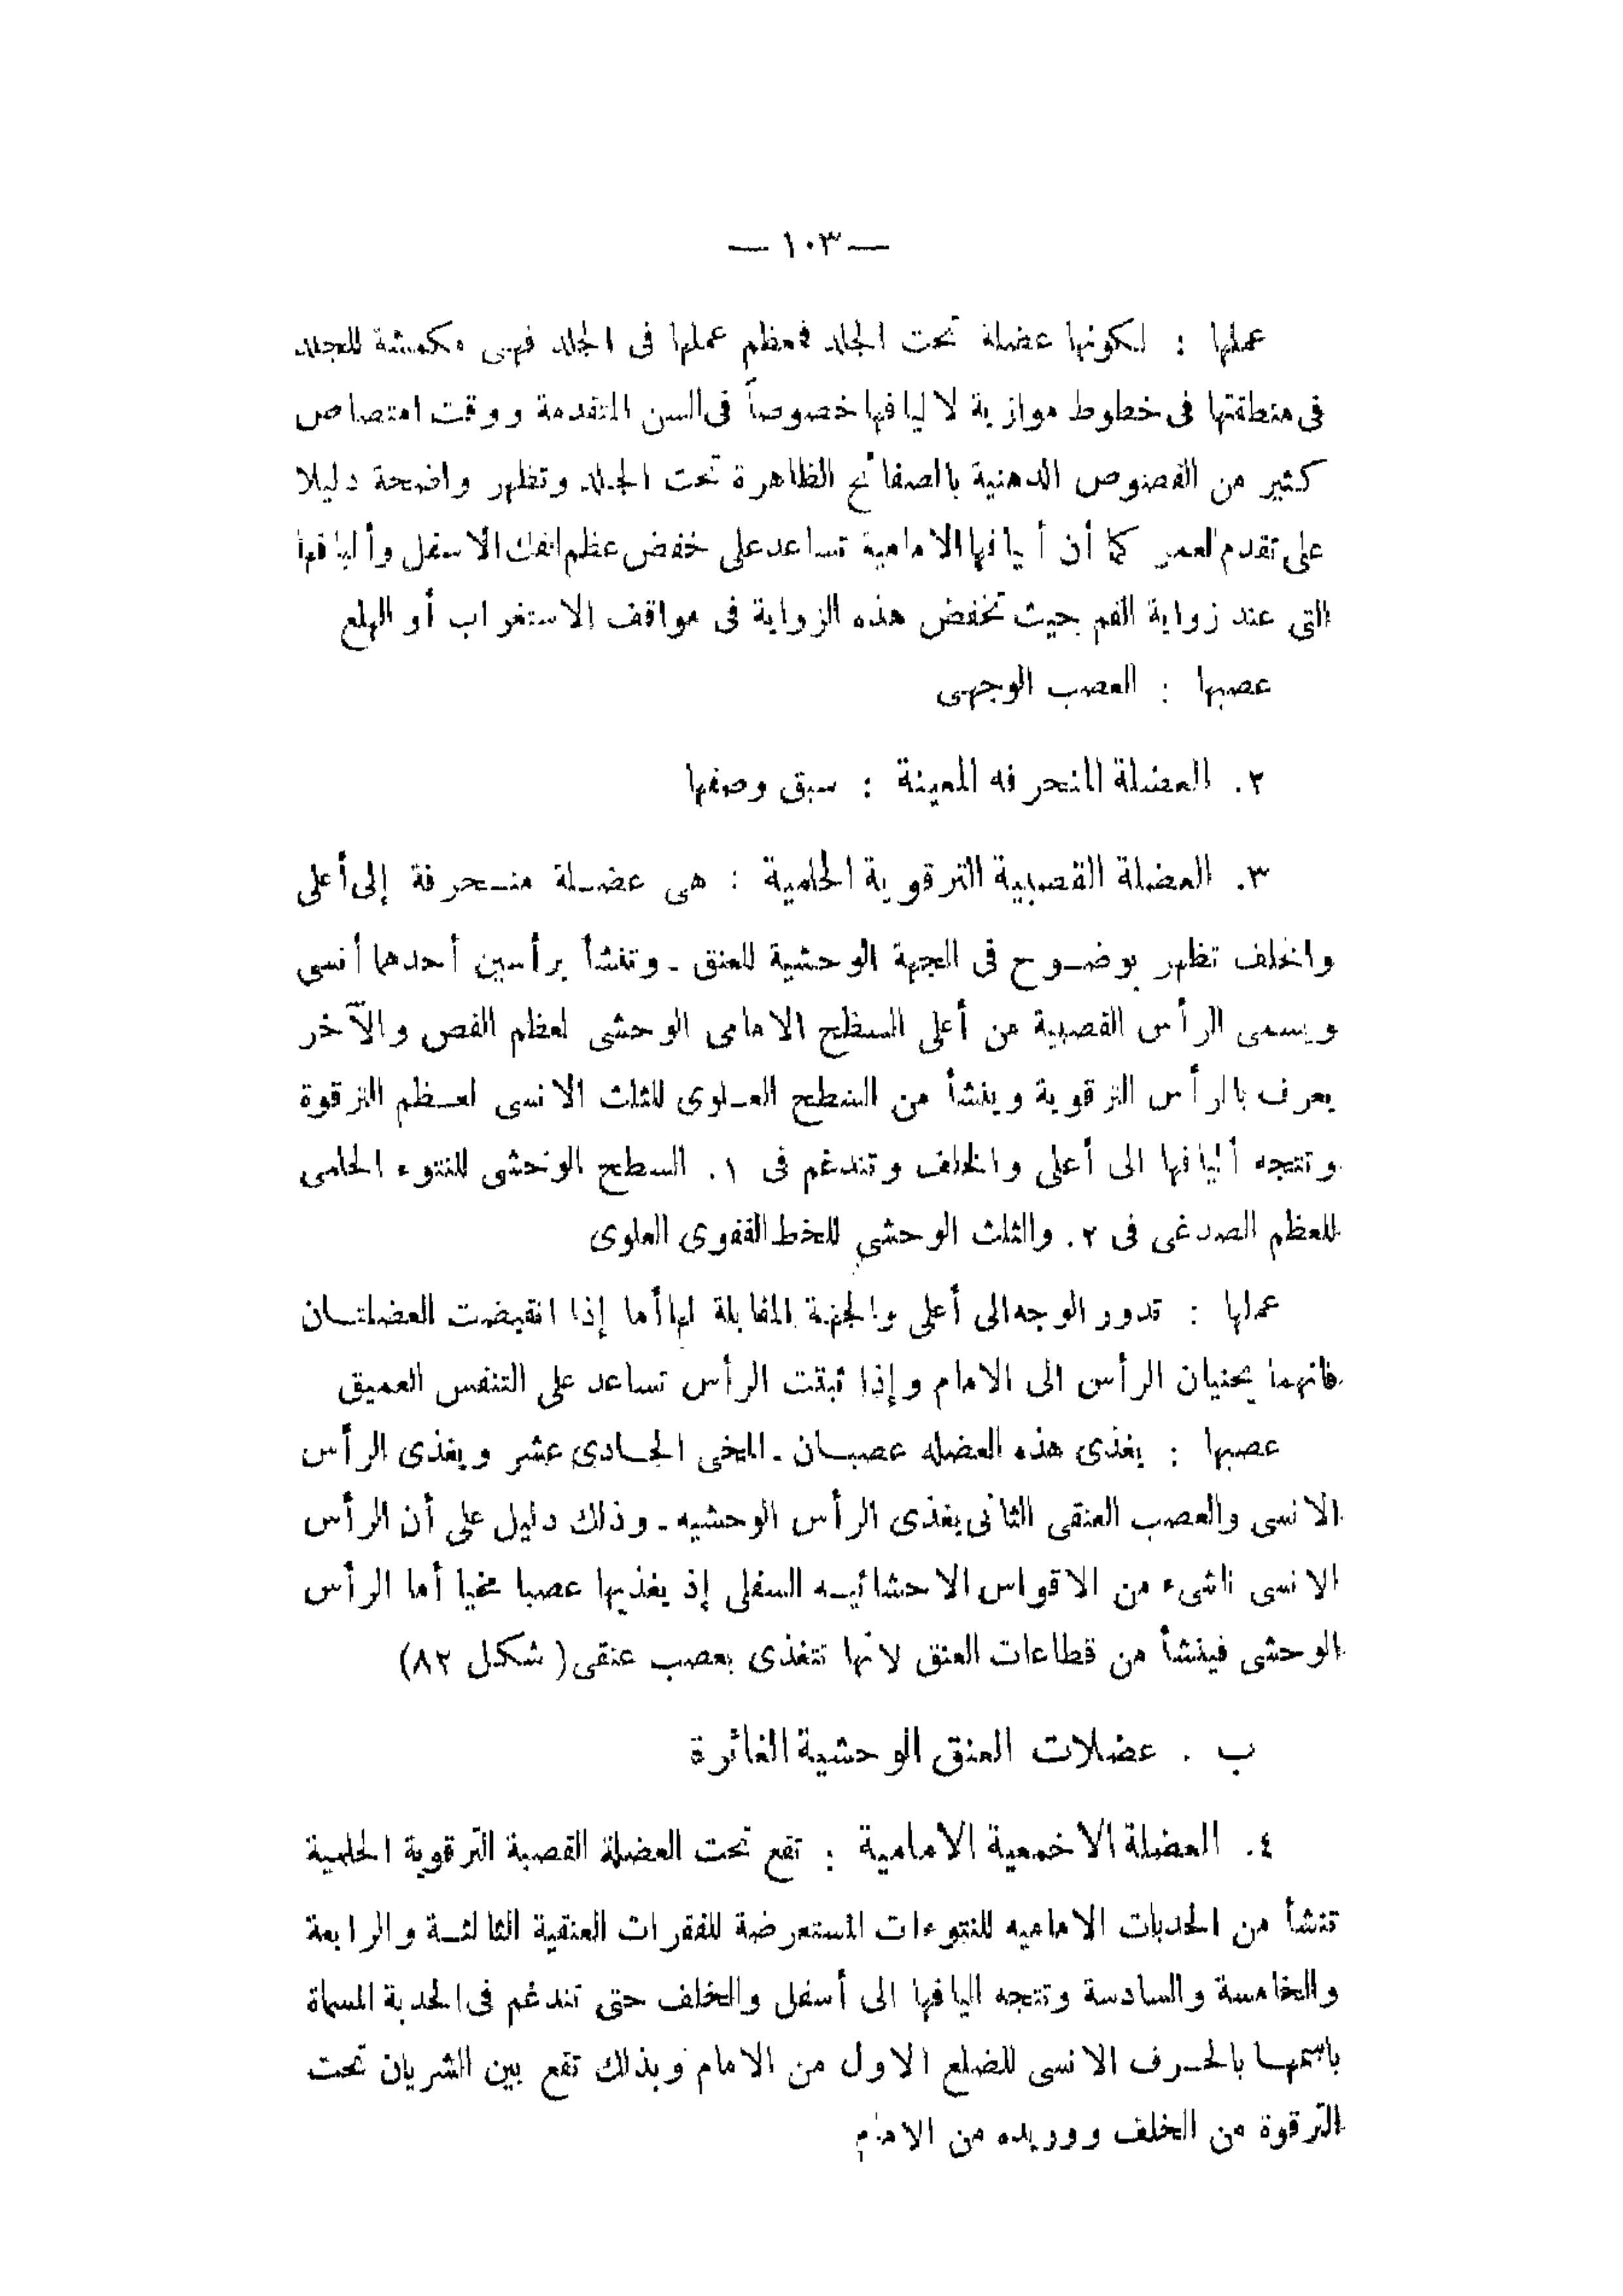 — ١٠٣ —
عملها : لكونها عضلة تحت الجلد فمعظم عملها فى الجلد فهى مكمشة للجلد
فى منطقتها فى خطوط موازية لاليافها خصوصاً فى السن المتقدمة ووقت امتصاص
كثير من الفصوص الدهنية بالصفائح الظاهرة تحت الجلد وتظهر واضحة دليلا
على تقدم العمر كما أن أليافها الامامية تساعد على خفض عظم الفك الاسفل وأليافها
التى عند زواية الفم حيث تخفض هذه الزواية فى مواقف الاستغراب أو الهلع
عصبها : العصب الوجهى
٢. العضلة المنحرفه المعينة : سبق وصفها
٣. العضلة القصبية الترقوية الحلمية : هى عضلة منحرفة إلى أعلى
والخلف تظهر بوضوح فى الجهة الوحشية للعنق ـ وتنشأ برأسين أحدهما أنسى
ويسمى الرأس القصبية من أعلى السطح الامامى الوحشى لعظم القص والآخر
يعرف بالرأس الترقوية وينشأ من السطح العلوى للثلث الانسى لعظم الترقوة
وتتجه أليافها الى أعلى والخلف وتندغم فى ١. السطح الوحشى للنتوء الحلمى
للعظم الصدغى فى ٢. والثلث الوحشى للخط القفوى العلوى
عملها : تدور الوجه الى أعلى والجهة المقابلة لها أما إذا انقبضت العضلتان
فانهما يحنيان الرأس الى الامام وإذا ثبتت الرأس تساعد على التنفس العميق
عصبها : يغذى هذه العضله عصبان ـ المخى الحادى عشر ويغذى الرأس
الانسى والعصب العنقى الثانى يغذى الرأس الوحشيه ـ وذلك دليل على أن الرأس
الانسى ناشىء من الاقواس الاحشائيه السفلى إذ يغذيها عصبا مخيا أما الرأس
الوحشى فينشأ من قطاعات العنق لانها تتغذى بعصب عنقى ( شكل ٨٢)
ب . عضلات العنق الوحشية الغائرة
٤. العضلة الاخمعية الامامية : تقع تحت العضلة القصبة الترقوية الحلمية
تنشأ من الحدبات الاماميه للنتوءات المستعرضة للفقرات العنقية الثالثة والرابعة
والخامسة والسادسة وتتجه اليافها الى أسفل والخلف حتى تندغم فى الحدبة المسماة
باسمها بالحرف الانسى للضلع الاول من الامام وبذلك تقع بين الشريان تحت
الترقوة من الخلف ووريده من الامام